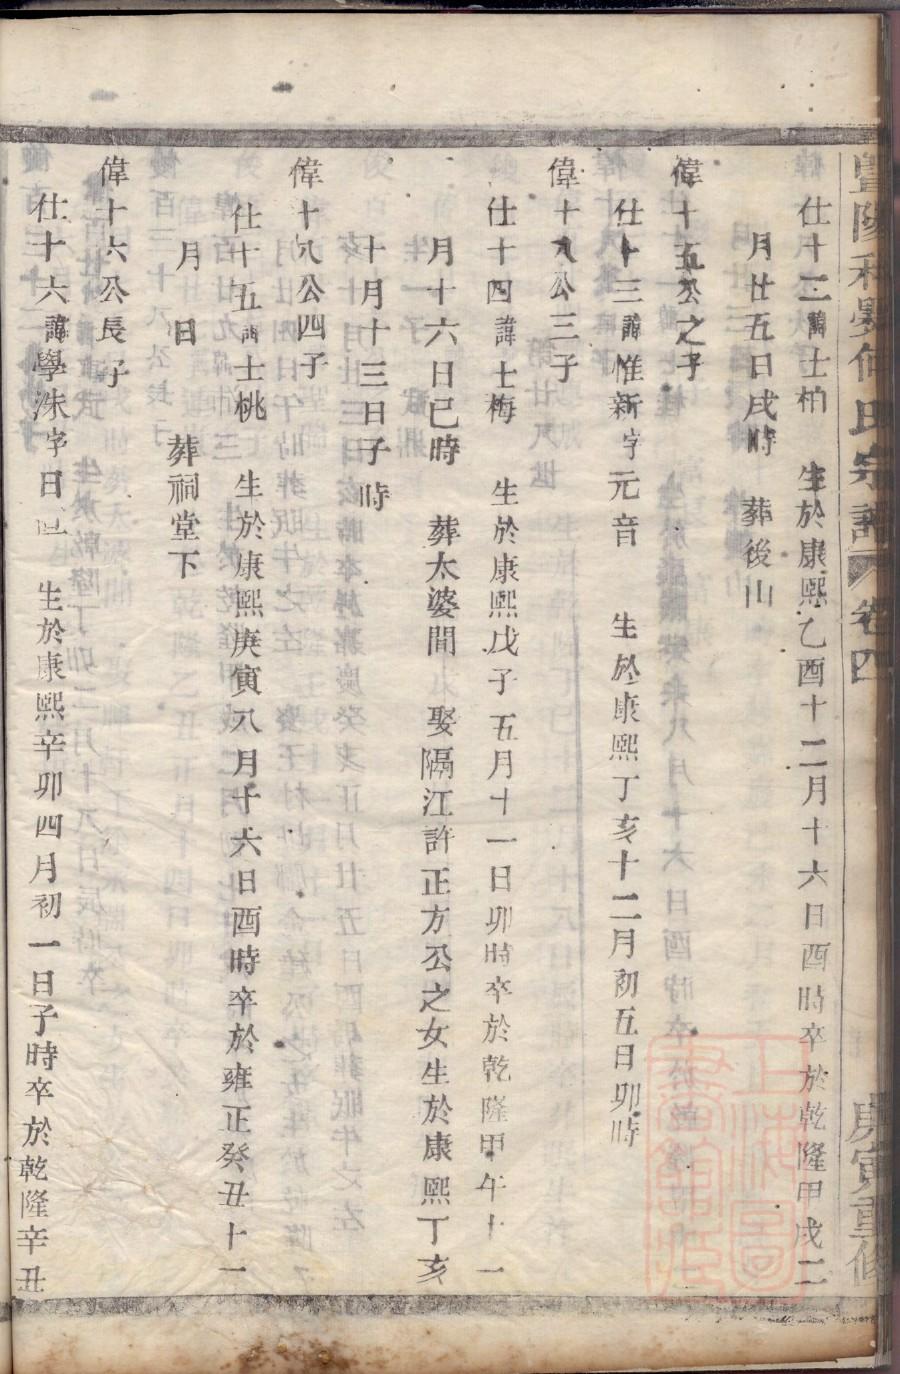 仕十二諱士柏 生於康熙乙酉十二月十六日酉時卒於乾隆甲戌二
月廿五日戌時 葬後山
偉十五公之子
仕十三諱惟新字元音 生於康熙丁亥十二月初五日卯時
偉十八公三子
仕十四諱士梅 生於康熙戊子五月十一日卯時卒於乾隆甲午十一
月十六日巳時 葬太婆間 娶隔江許正方公之女生於康熙丁亥
十月十三日子時
偉十八公四子
仕十五諱士桃 生於康熙庚寅八月十六日酉時卒於雍正癸丑十一
月 日 葬祠堂下
偉十六公長子
仕十六諱學洙字日 生於康熙辛卯四月初一日子時卒於乾隆辛丑
何氏宗譜 卷四 庚寅重修